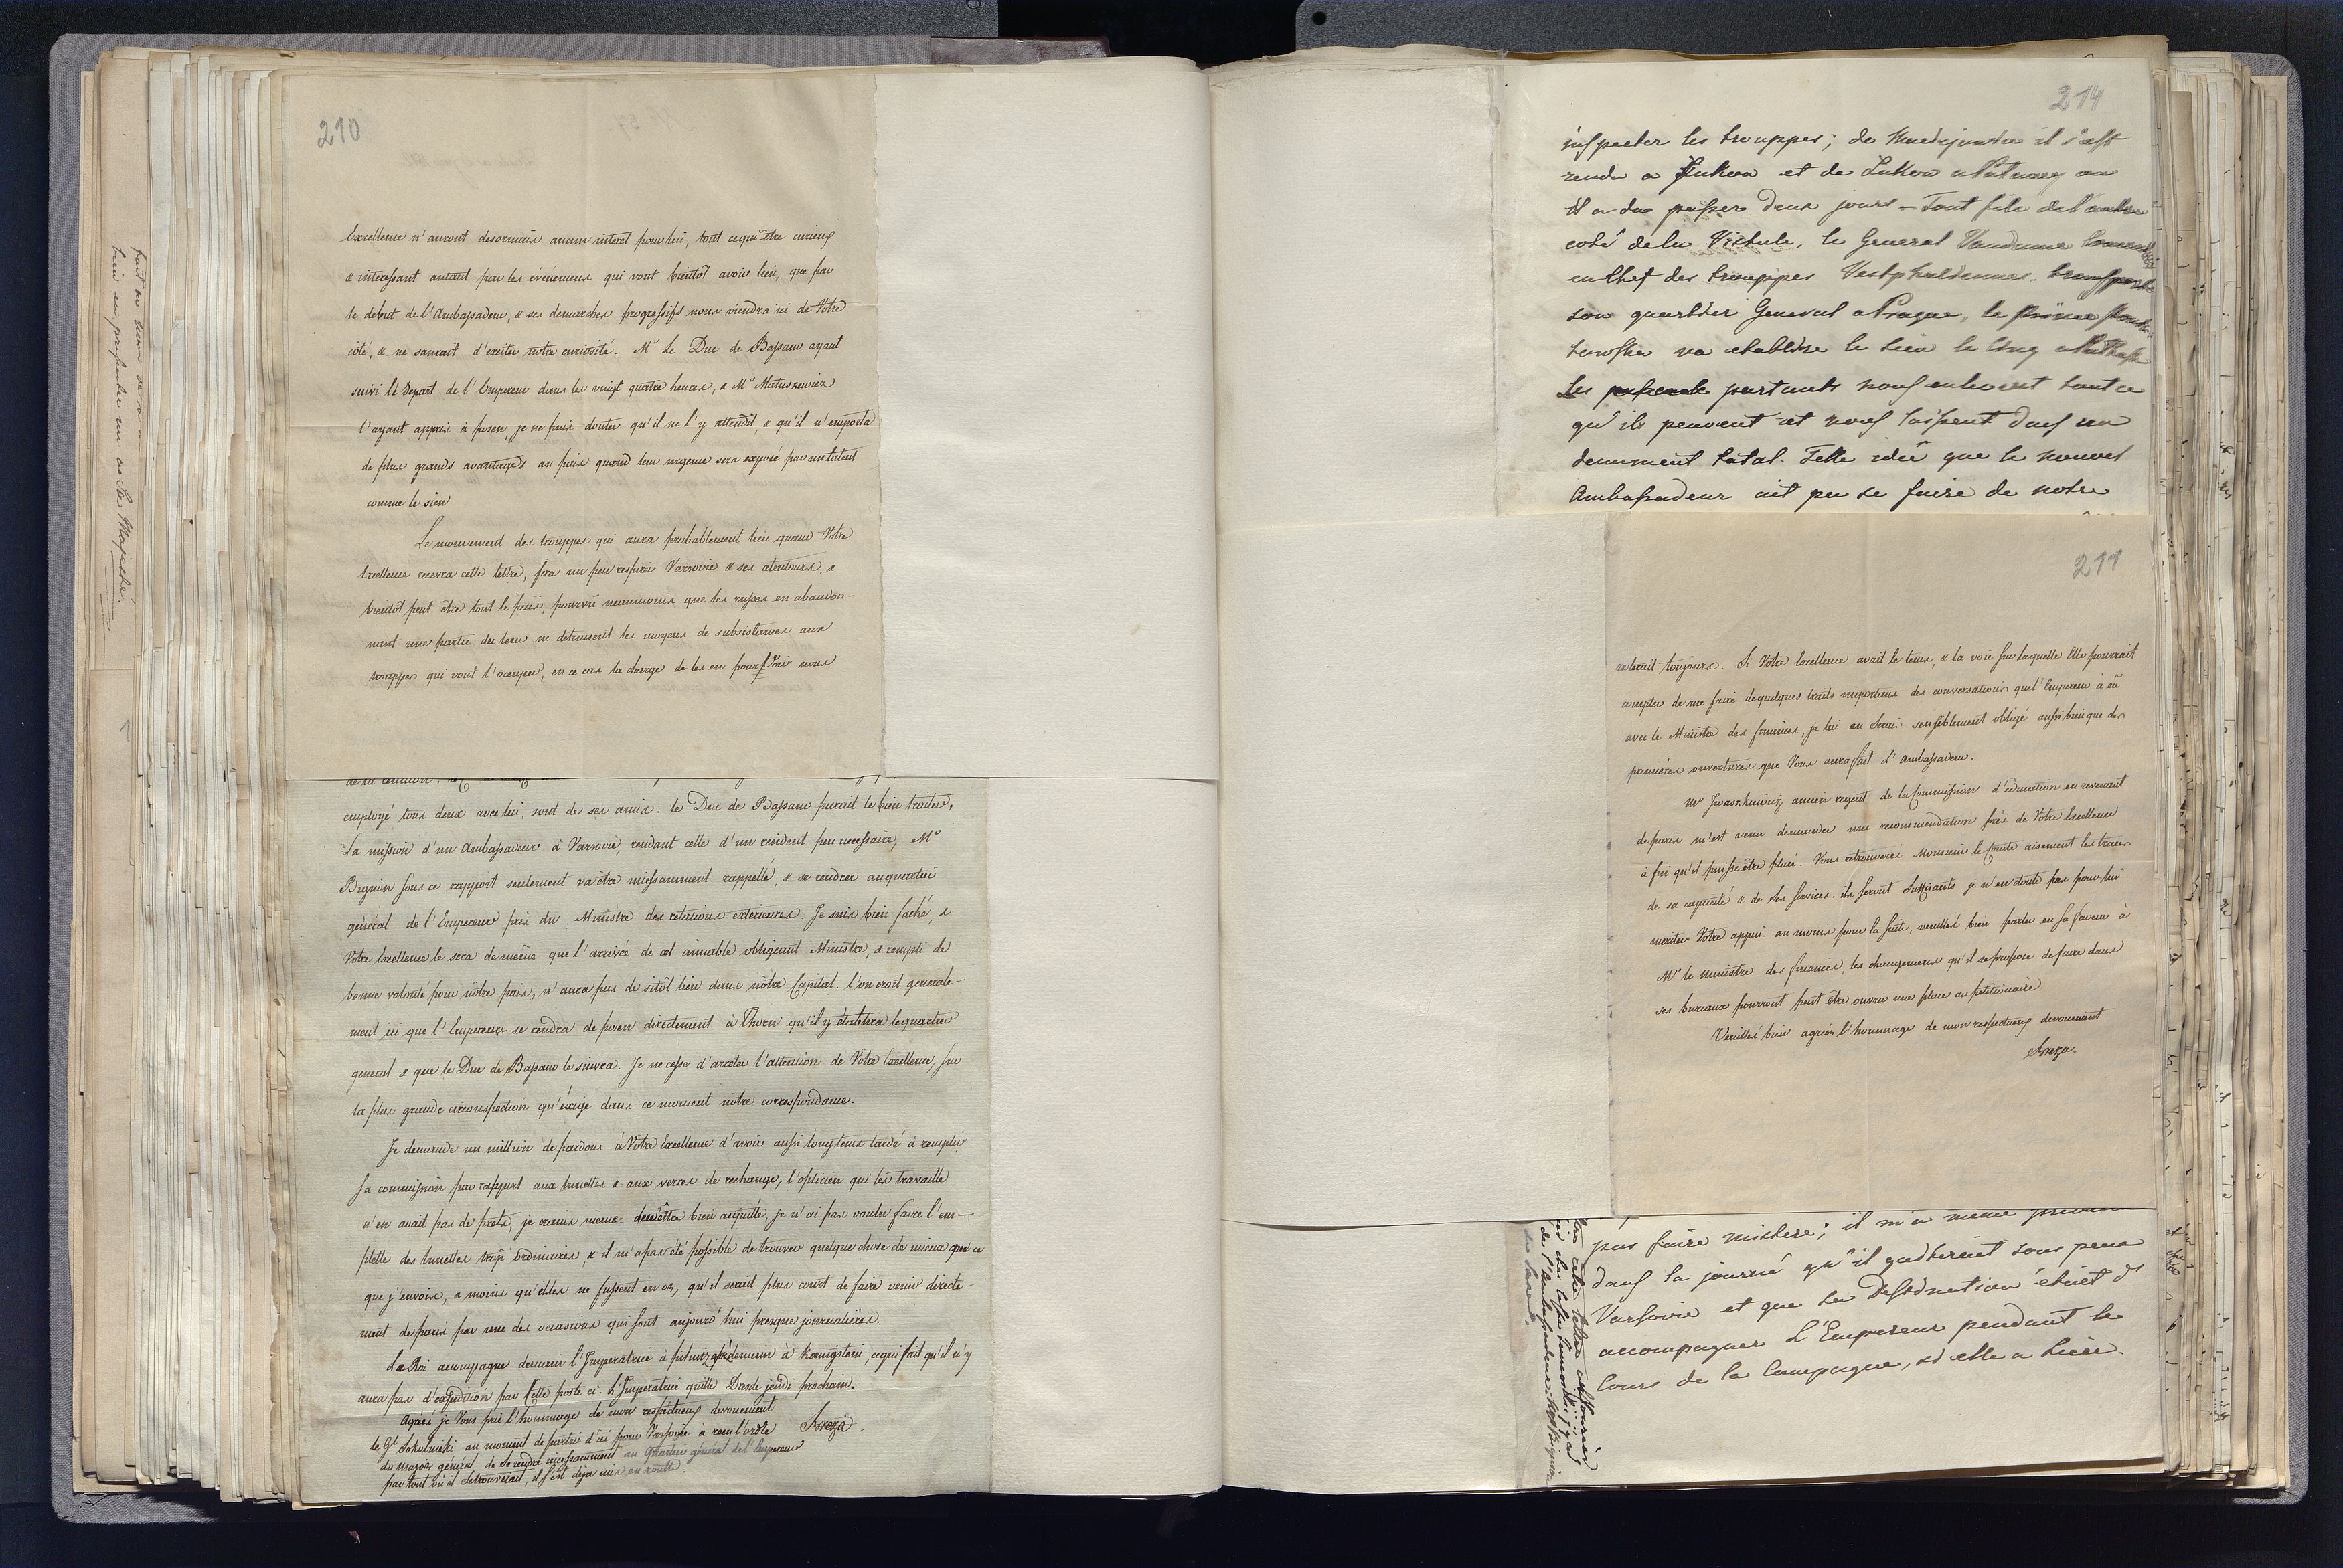 210
Excellence n'auront desormais aucun interet pour lui, tout cequi être curieux
& interessant autant par les évenemens qui vont bientôt avoir lieu, que par
le debut de l'Ambassadeur, & ses demarches progressifs nous viendra ici de Votre
côté, & ne saurait d'exciter notre curiosité. Mr Le Duc de Bassano ayant
suivi le depart de l'Empereur dans les vingt quatre heures, & Mr Matuszewicz
l'ayant appris à posen, je ne puis douter qu'il ne l'y attendît, & qu'il n'emporta
de plus grands avantages au païs quand leur urgence sera exposé par un talent
comme le sien
Le mouvement des trouppes qui aura probablement lieu quand Votre
Excellence recevra cette lettre, fera un peu respirer Varsovie & ses alentours, &
bientôt peut-être tout le païs, pourvu neanmoins que les russes en abandon-
nant une partie du leur ne detruisent les moyens de subsistances aux
trouppes qui vont l'occuper, en ce cas la charge de les en pourvoir nous
employé tous deux avec lui, sont de ses amis. le Duc de Bassano parait le bien traiter,
La mission d'un Ambassadeur à Varsovie, rendant celle d'un resident peu necessaire, Mr
Bignon sous ce rapport seulement va être incessamment rappellé, & se rendre au quartier
général de l'Empereur près du Ministre des relations exterieures. Je suis bien faché, &
Votre Excellence le sera de même que l'arrivée de cet aimable obligeant Ministre, & rempli de
bonne volonté pour nôtre païs, n'aura pas de sitôt lieu dans nôtre Capital. l'on croit generale-
ment ici que l'Empereur se rendra de posen directement à Thorn qu'il y établira le quartier
general & que le Duc de Bassano le suivra. Je ne cesse d'arreter l'attention de Votre Excellence, sur
la plus grande circonspection qu'exige dans ce moment nôtre correspondance.
Je demande un million de pardons à Votre Excellence d'avoir aussi longtems tardé à remplir
sa commission par rapport aux lunettes & aux verres de rechange, l'opticien qui les travaille
n'en avait pas de prets, je crains même d'être bien acquitté, je n'ai pas voulu faire l'em-
plette des lunettes trop ordinaires, & il m'a pas été possible de trouver quelque chose de mieux que ce
que j'envoie, a moins qu'elles ne fussent en or, qu'il serait plus court de faire venir directe-
ment de paris par une des occasions qui sont aujourd'hui presque journalières.
Le Roi accompagne demain l'Imperatrice à pilnitz, après demain à Kœnigstein, cequi fait qu'il n'y
aura pas d'expedition par cette poste ci. L'Imperatrice quitte Dresde jeudi prochain.
Agréés je Vous prie l'hommage de mon respectueux devouement
Breza
le Gl Sokolnicki au moment de partir d'ici pour Varsovie a reçu l'ordre
du major général de se rendre incessamment au quartier général de l'Empereur
par tout où il se trouverait, il s'est deja mis en route.
bien en presenter un a Sa Majesté.
214
inspecter les trouppes; de il s'est
rendu a Łukow et de Łukow a Pulawy ou
il a du passer deux jours — Tout file de l'autre
coté de la Vistule, le General Vandamme
en Chef des trouppes Vestphaliennes transporte
son quartier General a Prague, le Prince
va etablir le sien le cinq a
Les partants nous enlevent tout ce
qu'ils peuvent et nous laissent dans un
denument total. Telle idée que le nouvel
Ambassadeur ait pu se faire de notre
211
resterait toujours. Si Votre Excellence avait le tems, & la voie sur laquelle Elle pourrait
compter de me faire de quelques traits importans des conversations que l'Empereur à eû
avec le Ministre des finances, je lui en serai sensiblement obligé aussi bien que des
premières ouvertures que Vous aura fait L'ambassadeur.
Mr Iwaszkiewicz ancien regent de la Commission d'éducation en revenant
de paris m'est venu demander une recommendation près de Votre Excellence
à fin qu'il puisse être placé. Vous retrouverés Monsieur le Comte aisement les traces
de sa capacité & de ses services. ils seront suffisants je n'en doute pas pour lui
meriter Votre appui. au moins pour la suite, veuillés bien parler en sa faveur à
Mr le ministre des finances, les changemens qu'il se propose de faire dans
ses bureaux pourront peut être ouvrir une place au petitionaire.
Veuillés bien agréer l'hommage de mon respectueux devouement
Breza.
pas faire mistere; il m'a meme
dans la journée qu'il quitterait sous peu
Varsovie et que sa Destination étoit d'
accompagner L'Empereur pendant le
Cours de la Campagne, si elle a lieu.